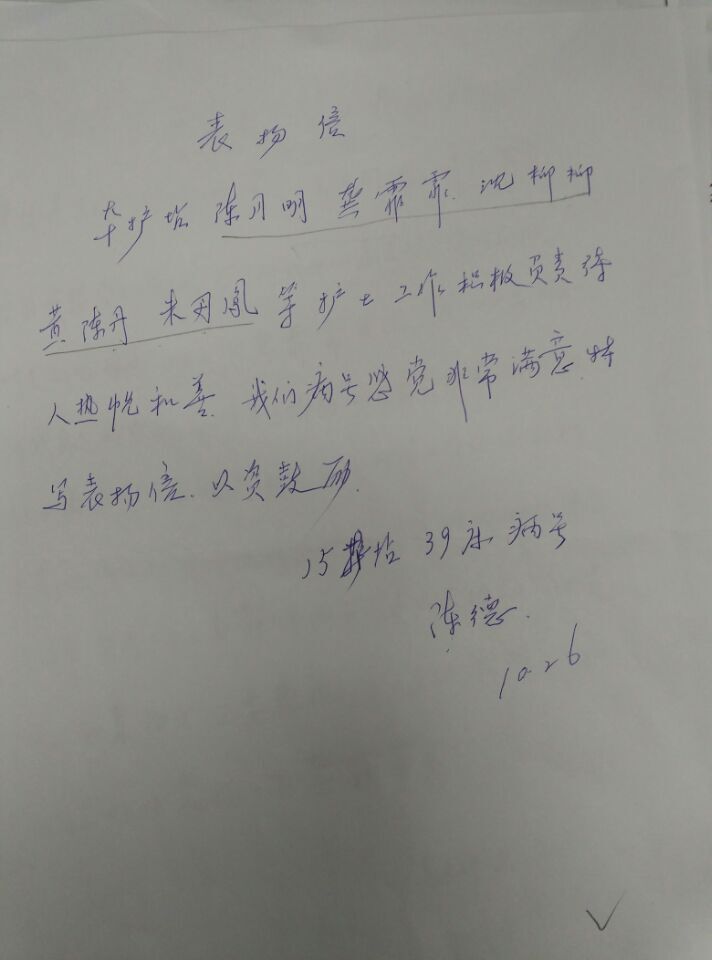 表扬信
护站 陈月明 龚霏霏 沈柳柳
黄陈丹 朱丹凤 等护士工作积极负责待
人热忱和善 我们病号感觉非常满意.特
写表扬信.以资鼓励.
15 站 39床 病号
陈德.
10.26